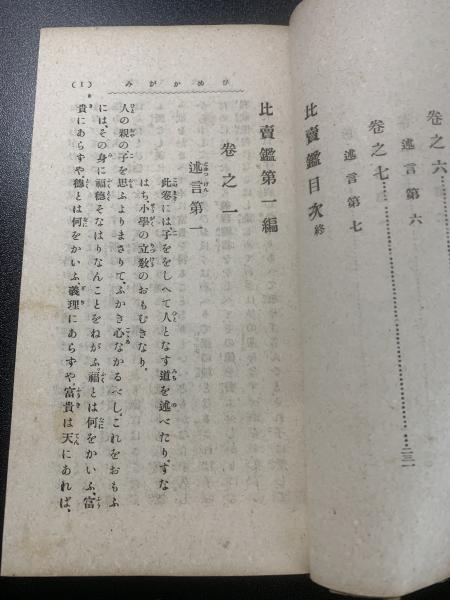 卷之六
述言第六
卷之七……………………二三一
述言第七
比賣鑑目次終
ひめかがみ
(1)
比賣鑑第一編
卷之一
述言第一
此卷には子ををしへて人となす道を述べたり、すな
はち小學の立敎のおもむきなり、
人の親の子を思ふよりまさりて、ふかき心なかるべし、これをおもふ
には、その身に福德そなはりなんことをねがふ、福とは何をかいふ、富
貴にあらずや、德とは何をかいふ、義理にあらずや、富貴は天にあれば、